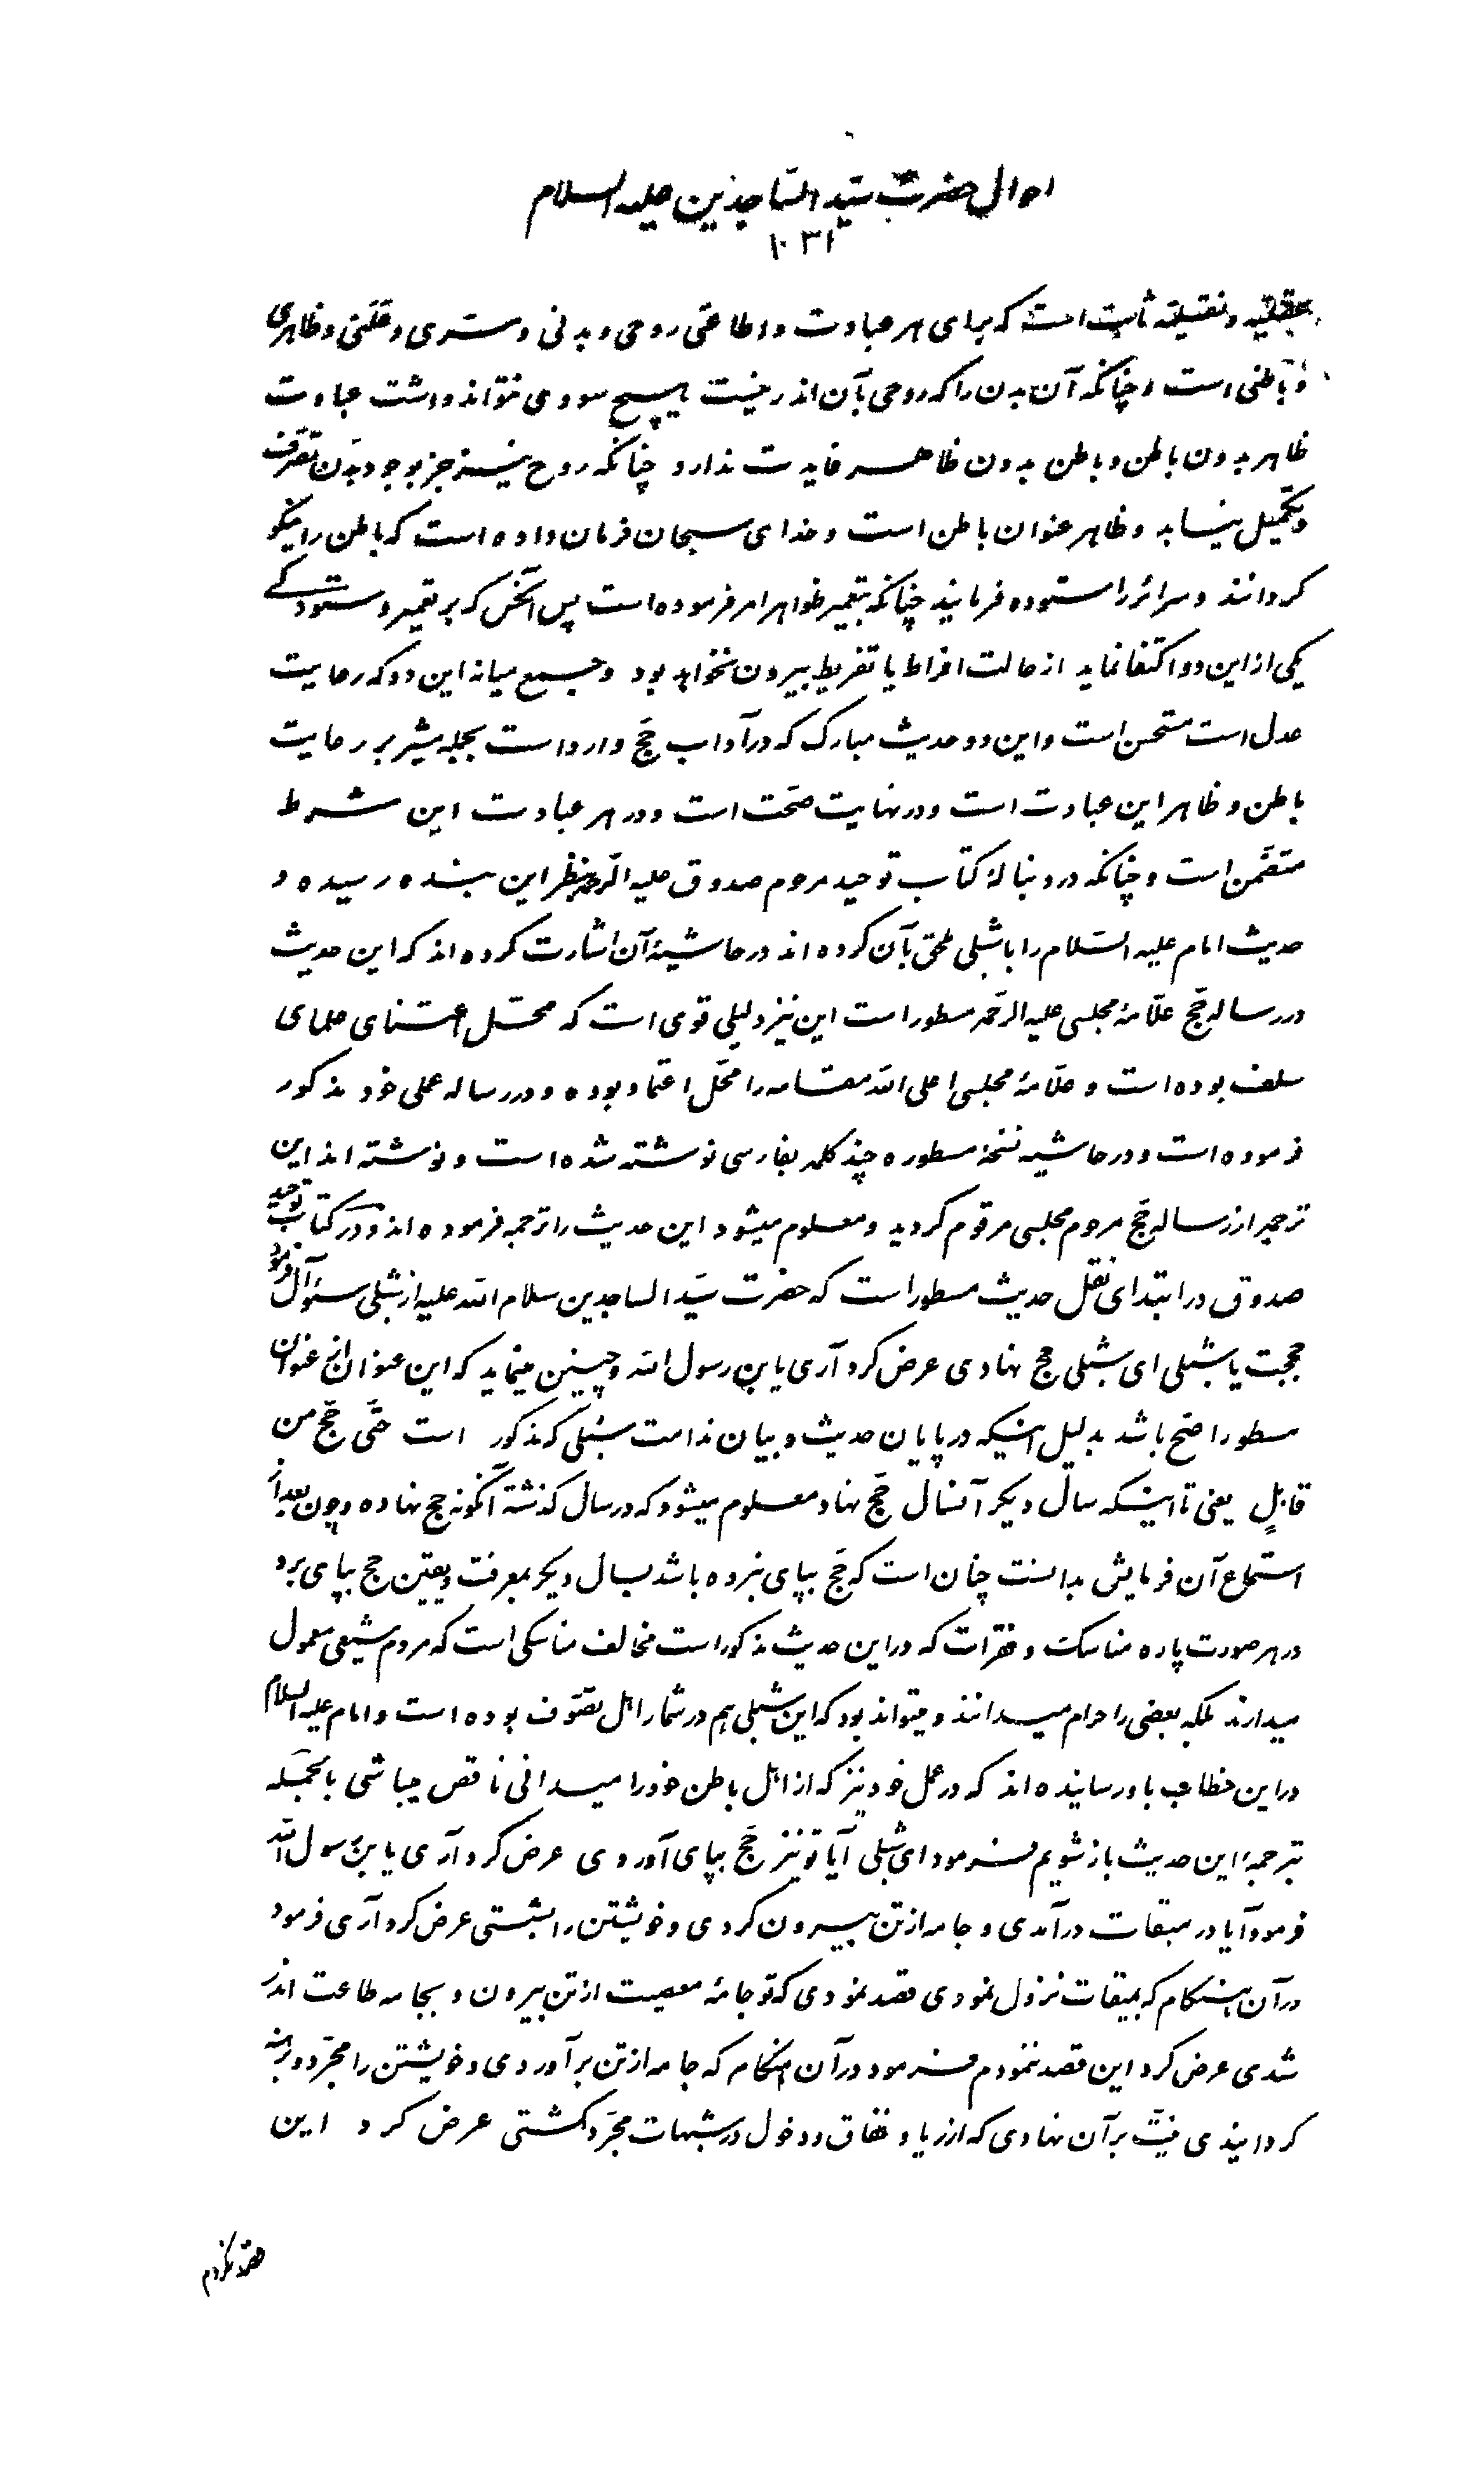 احوال حضرت سیّد السّاجدین علیه السلام
۱۰۳۱
عقلیّه و نقلیّه ثابت است که برای هر عبادت و اطاعتی روحی و بدنی و سرّی و علنی و ظاهری
و باطنی است و چنانکه آن بدن را که روحی بآن اندر نیست هیچ سودی نتواند داشت عبادت
ظاهر بدون باطن و باطن بدون ظاهر فایدت ندارد چنانکه روح نیز جز بوجود بدن تصرّف
و تکمیل نیابد و ظاهر عنوان باطن است و خدای سبحان فرمان داده است که باطن را نیکو
گردانند و سرائر را ستوده فرمایند چنانکه بتعمیر ظواهر امر فرموده است پس آنکس که بر تعمیر و ستودگی
یکی از این دو اکتفا نماید از حالت افراط یا تفریط بیرون نخواهد بود و جمع میانه این دو که رعایت
عدل است مستحسن است و این دو حدیث مبارک که در آداب حجّ وارد است بجمله مشیر بر رعایت
باطن و ظاهر این عبادت است و در نهایت صحّت است و در هر عبادت این شرط
متضمّن است و چنانکه در دنبالهٔ کتاب توحید مرحوم صدوق علیه الرّحمه بنظر این بنده رسیده و
حدیث امام علیه السّلام را با شبلی ملحق بآن کرده اند در حاشیهٔ آن اشارت کرده اند که این حدیث
در رساله حجّ علّامهٔ مجلسی علیه الرّحمه مسطور است این نیز دلیلی قوی است که محلّ اعتنای علمای
سلف بوده است و علّامهٔ مجلسی اعلی الله مقامه را محلّ اعتماد بوده و در رساله عملی خود مذکور
فرموده است و در حاشیه نسخهٔ مسطوره چند کلمه بفارسی نوشته شده است و نوشته اند این
ترجمه از رساله حجّ مرحوم مجلسی مرقوم گردید و معلوم میشود این حدیث را ترجمه فرموده اند و در کتاب توحید
صدوق در ابتدای نقل حدیث مسطور است که حضرت سیّد الساجدین سلام الله علیه از شبلی سئوال فرمود
حججت یا شبلی ای شبلی حج نهادی عرض کرد آری یابن رسول الله و چنین مینماید که این عنوان از عنوان
مسطور اصحّ باشد بدلیل اینکه در پایان حدیث و بیان ندامت شبلی که مذکور است حتّی حجّ من
قابلٍ یعنی تا اینکه سال دیگر آنسال حجّ نهاد معلوم میشود که در سال گذشته آنگونه حج نهاده و چون بعد از
استماع آن فرمایش بدانست چنان است که حجّ بپای نبرده باشد بسال دیگر بمعرفت و یقین حج بپای برد
در هر صورت پاره مناسک و فقرات که در این حدیث مذکور است مخالف مناسکی است که مردم شیعی معمول
میدارند بلکه بعضی را حرام میدانند و میتواند بود که این شبلی هم در شمار اهل تصوّف بوده است و امام علیه السلام
در این خطاب باو رسانیده اند که در عمل خود نیز که از اهل باطن خود را میدانی ناقص میباشی بالجمله
بترجمهٔ این حدیث باز شویم فرمود ای شبلی آیا تو نیز حجّ بپای آوردی عرض کرد آری یابن رسول الله
فرمود آیا در میقات درآمدی و جامه از تن بیرون کردی و خویشتن را بشستی عرض کرد آری فرمود
در آن هنگام که بمیقات نزول نمودی قصد نمودی که تو جامهٔ معصیت از تن بیرون و بجامه طاعت اندر
شدی عرض کرد این قصد ننمودم فرمود در آن هنگام که جامه از تن برآوردی و خویشتن را مجرّد و برهنه
گردانیدی نیّت بر آن نهادی که از ریا و نفاق و دخول در شبهات مجرّد گشتی عرض کرد این
قصد نکردم